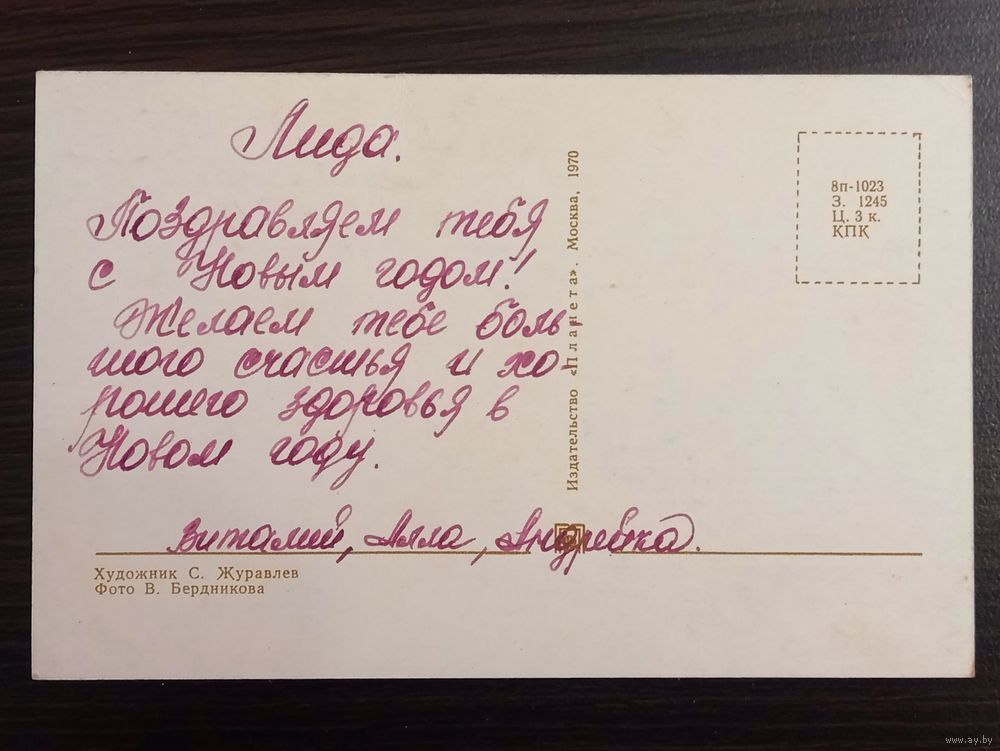 Лида.
Поздравляем тебя
с Новым годом!
Желаем тебе боль-
шого счастья и хо-
рошего здоровья в
Новом году.
Виталий, Алла, Андрейка.
Художник С. Журавлев
Фото В. Бердникова
Издательство «Планета». Москва, 1970
8п-1023
З. 1245
Ц. 3 к.
КПК
www.ay.by